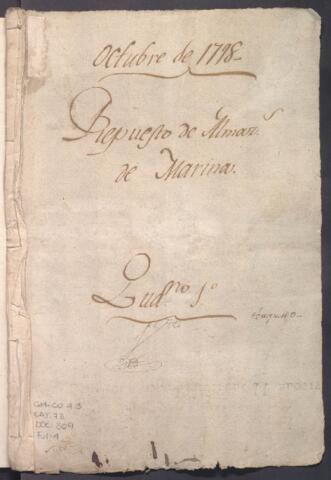 Octubre de 1798
Repuesto de Alma.s
de Marina.
Quad.no 1o
GM-CO 43
CAY: 73
DOC: 809
Fol: 1